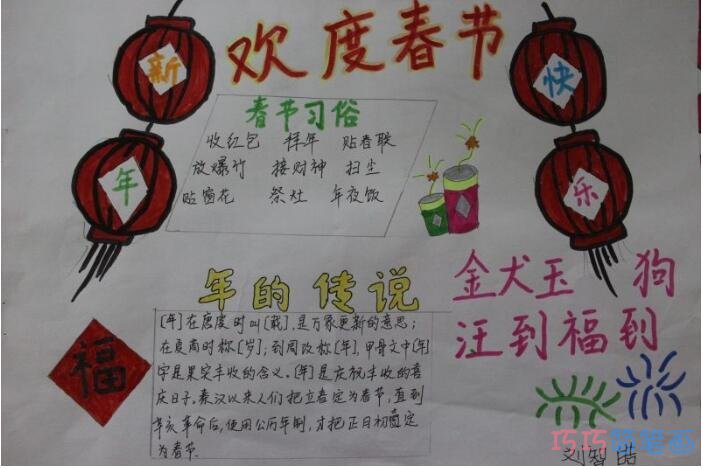 欢度春节
新年
快乐
春节习俗
收红包 拜年 贴春联
放爆竹 接财神 扫尘
贴窗花 祭灶 年夜饭
年的传说
[年]在唐虞时叫[载],是万象更新的意思;
在夏商时称[岁];到周改称[年],甲骨文中[年]
字是果实丰收的含义。[年]是庆祝丰收的喜
庆日子。秦汉以来人们把立春定为春节,直到
辛亥革命后,使用公历年制,才把正月初壹定
为春节.
福
金犬玉 狗
汪到福到
刘智皓
巧巧简笔画